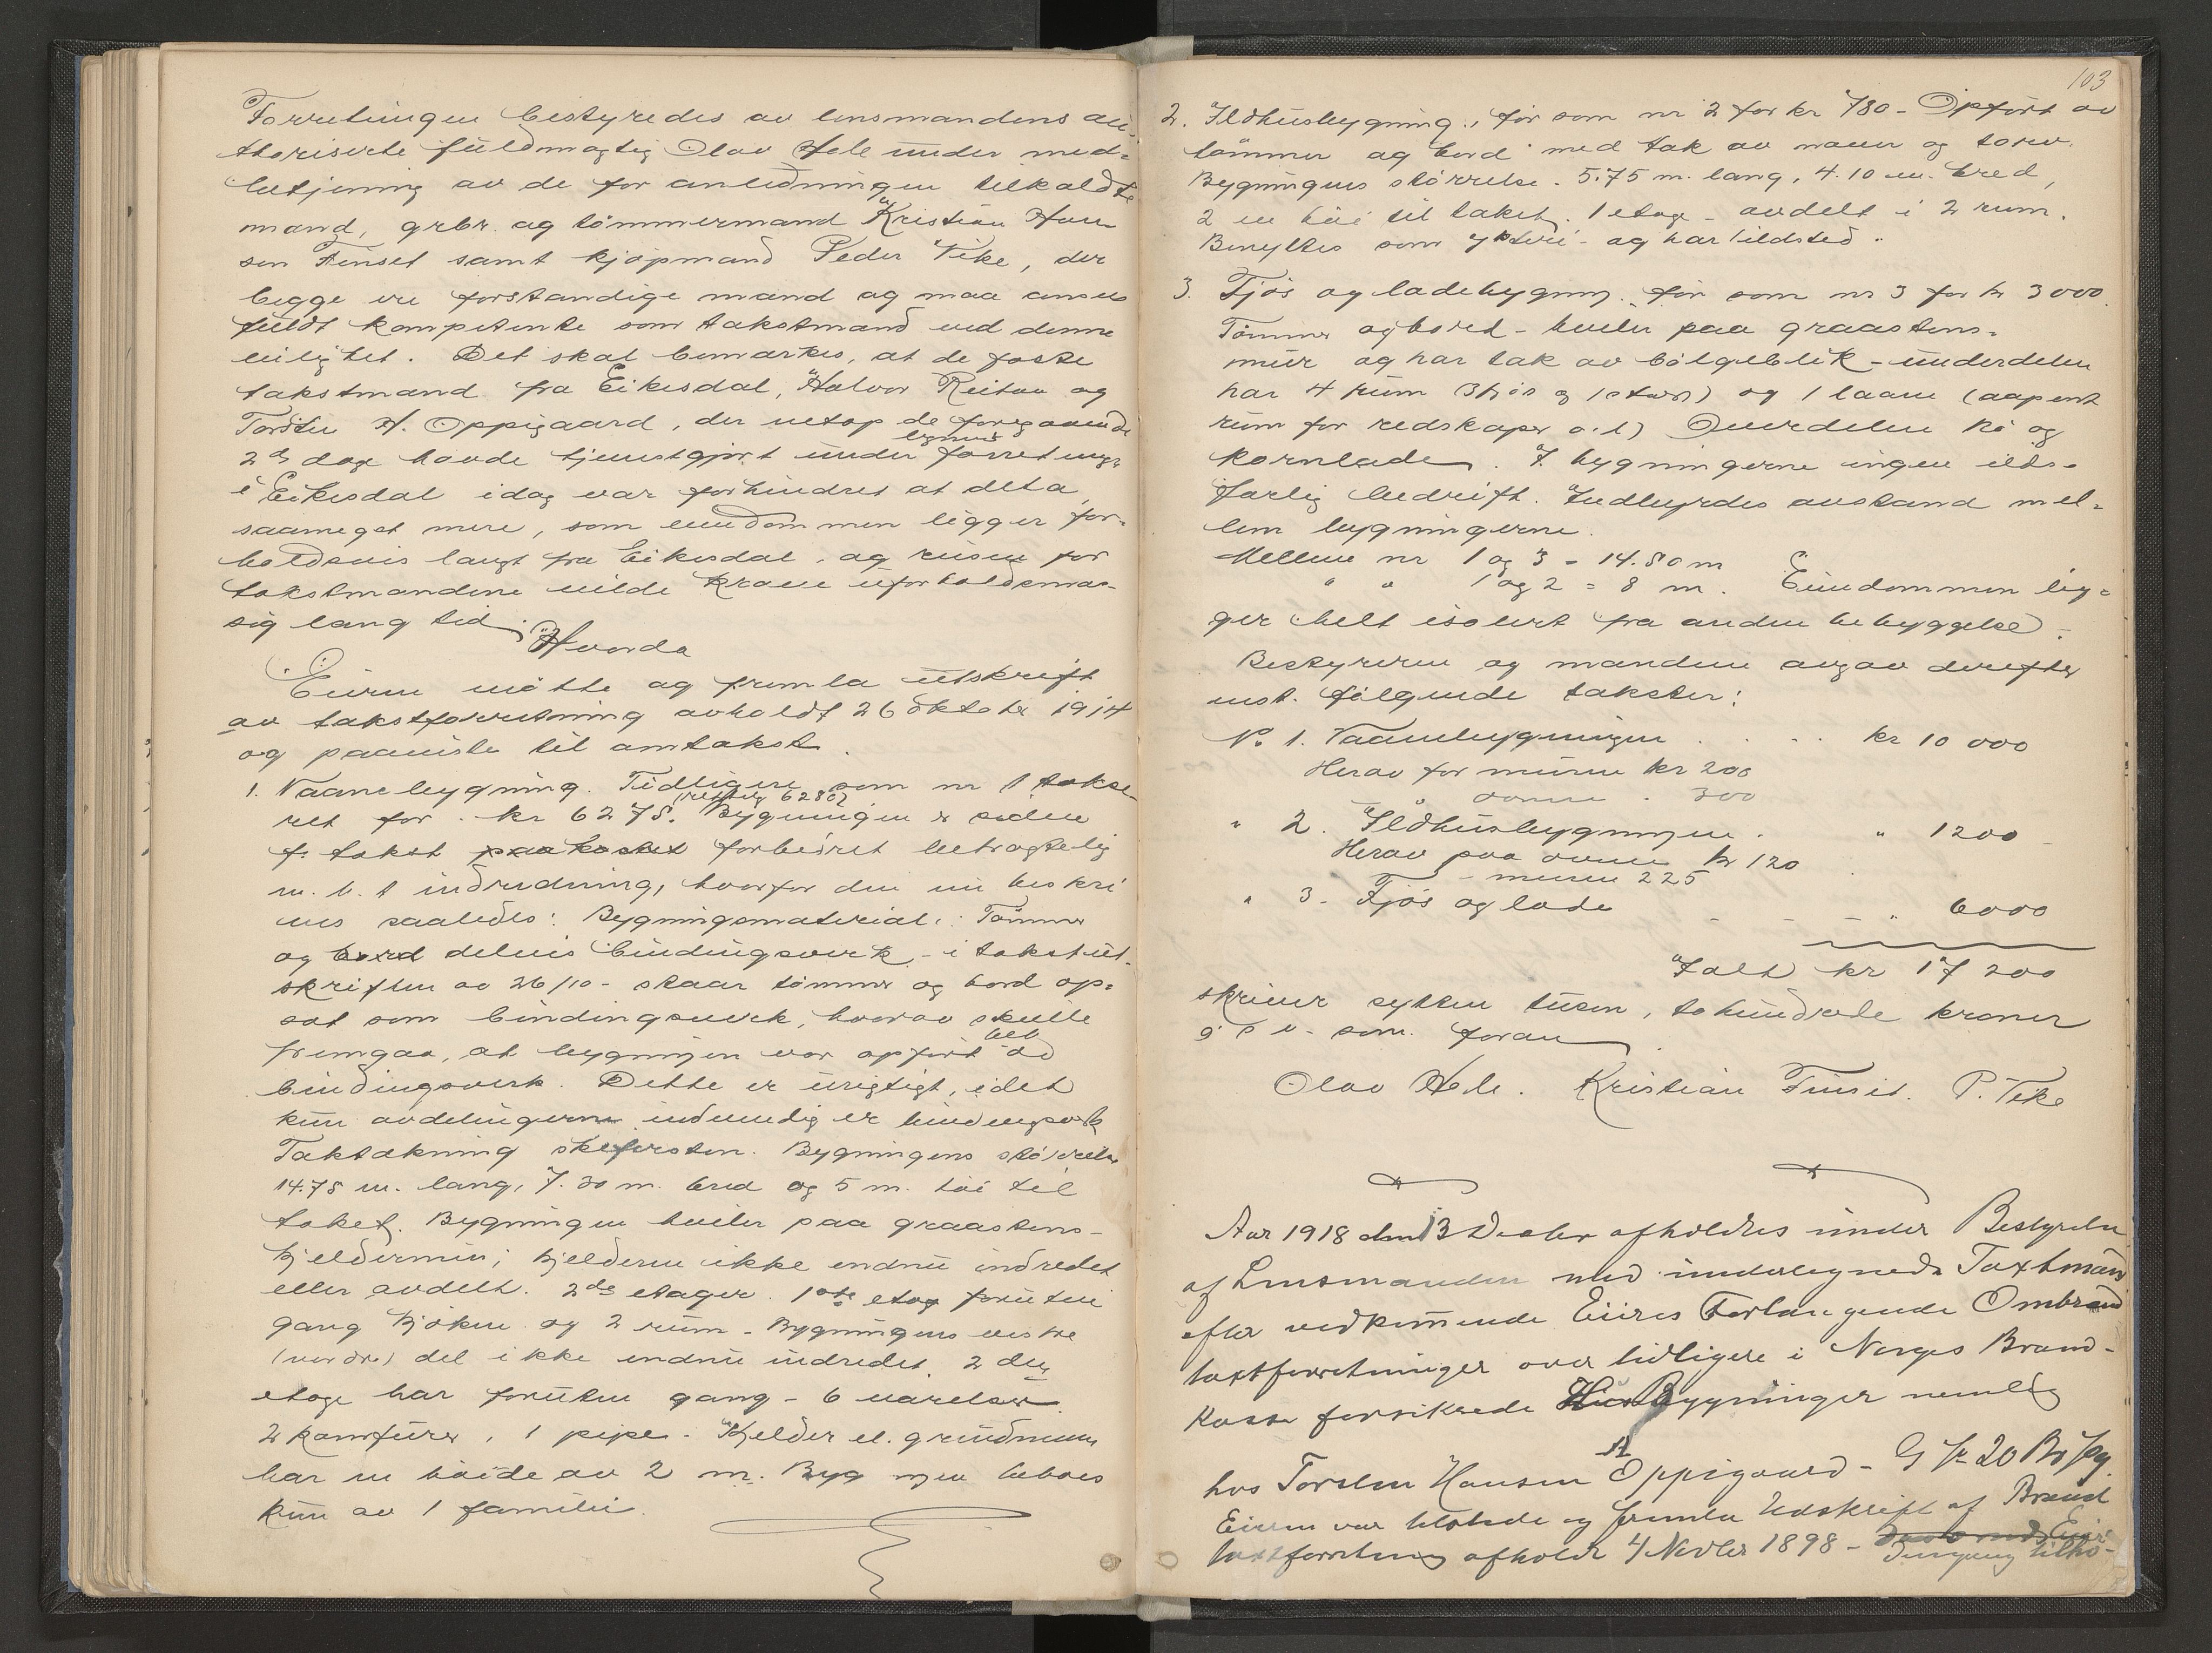 Forretningen bestyredes av lensmandens au-
thoriserte fuldmægtig Olav Hole under med-
betjening av de for anledningen tilkaldte
mænd, grbr. og tømmermand Kristian Han-
sen Finset samt kjøpmand Peder Vike, der
begge er forstandige mænd og maa ansees
fuldt kompetente som takstmænd ved denne
leilighet. Det skal bemærkes, at de faste
takstmænd fra Eikesdal, Halvor Reitan og
Torsten H. Oppigaard, der netop de foregaaende
2de dage havde tjenestgjort under lignende forretninger
i Eikesdal idag var forhindret at delta,
saameget mere, som eiendommen ligger for-
holdsvis langt fra Eikesdal, og reisen for
takstmændene vilde kræve uforholdsmæs-
sig lang tid.
Hvorda
Eieren møtte og fremla utskrift
av takstforretning avholdt 26 oktober 1914
og paaviste til omtakst.
1. Vaanebygning. Tidligere som nr 1 takse-
ret for kr 6275. (rettelig 6280) Bygningen er siden
f. takst paakostet forbedret betragtelig
m. h. t indredning, hvorfor den nu beskri-
ves saaledes: Bygningsmateriale: Tømmer
og bord delvis bindingsverk - i takstut-
skriften av 26/10 - staar tømmer og bord op-
sat som bindingsverk, hvorav skulle
fremgaa, at bygningen var opført helt av
bindingsverk. Dette er urigtigt, idet
kun avdelingerne indvendig er bindingsverk
Taktækning skifersten. Bygningens størrelse
14.75 m. lang, 7.30 m. bred og 5 m. høi til
taket. Bygningen hviler paa graastens-
kjeldermur; kjelderen ikke endnu indredet
eller avdelt. 2de etager. 1ste etage foruten
gang kjøken og 2 rum - Bygningens vestre
(nordre) del ikke endnu indredet. 2den
etage har foruten gang - 6 værelser.
2 kamfurer, 1 pipe. Kjelder el. grundmuren
har en høide av 2 m. Bygningen beboes
kun av 1 familie.
103
2. Ildhusbygning, før som nr 2 for kr 780 - Opført av
tømmer og bord med tak av næver og torv.
Bygningens størrelse. 5.75 m. lang, 4.10 m. bred,
2 m høi til taket. 1 etage - avdelt i 2 rum.
Benyttes som og har ildsted.
3. Fjøs og ladebygning, før som nr 3 for kr 3000.
Tømmer og bord - hviler paa graastens-
mur og har tak av bølgeblik - underdelen
har 4 rum (3 fjøs og 1 stald) og 1 laave (aapent
rum for redskaper o.l) Overdelen hø og
kornlade. I bygningerne ingen ilds-
farlig bedrift. Indbyrdes avstand mel-
lem bygningerne.
Mellem nr 1 og 3 = 14.80 m
" " 1 og 2 = 8 m. Eiendommen lig-
ger helt isolert fra anden bebyggelse.
Bestyreren og mændene avgav derefter
enst. følgende takster:
No 1. Vaanebygningen . . . . kr 10 000
Herav for murene kr 200
ovnene " 300
" 2. Ildhusbygningen . " 1200
Herav paa ovnene kr 120
- muren 225
" 3 - Fjøs og lade - - - " 6000
Ialt kr 17 200
skriver sytten tusen, tohundrede kroner
g s v. som foran
Olav Hole. Kristian Finset. P. Vike
Aar 1918 den 13 Decbr afholdtes under Bestyrelse
af Lensmanden med undertegnede Taxtmænd
efter vedkommende Eieres Forlangende Ombrand-
taxtforretninger over tidligere i Norges Brand-
kasse forsikrede Hus Bygninger nemlig
hos Torsten Hansen Oppigaard - G No 20 Br No
Eieren var tilstede og fremla Udskrift af Brand
taxtforretning afholdt 4 Novbr 1898 -